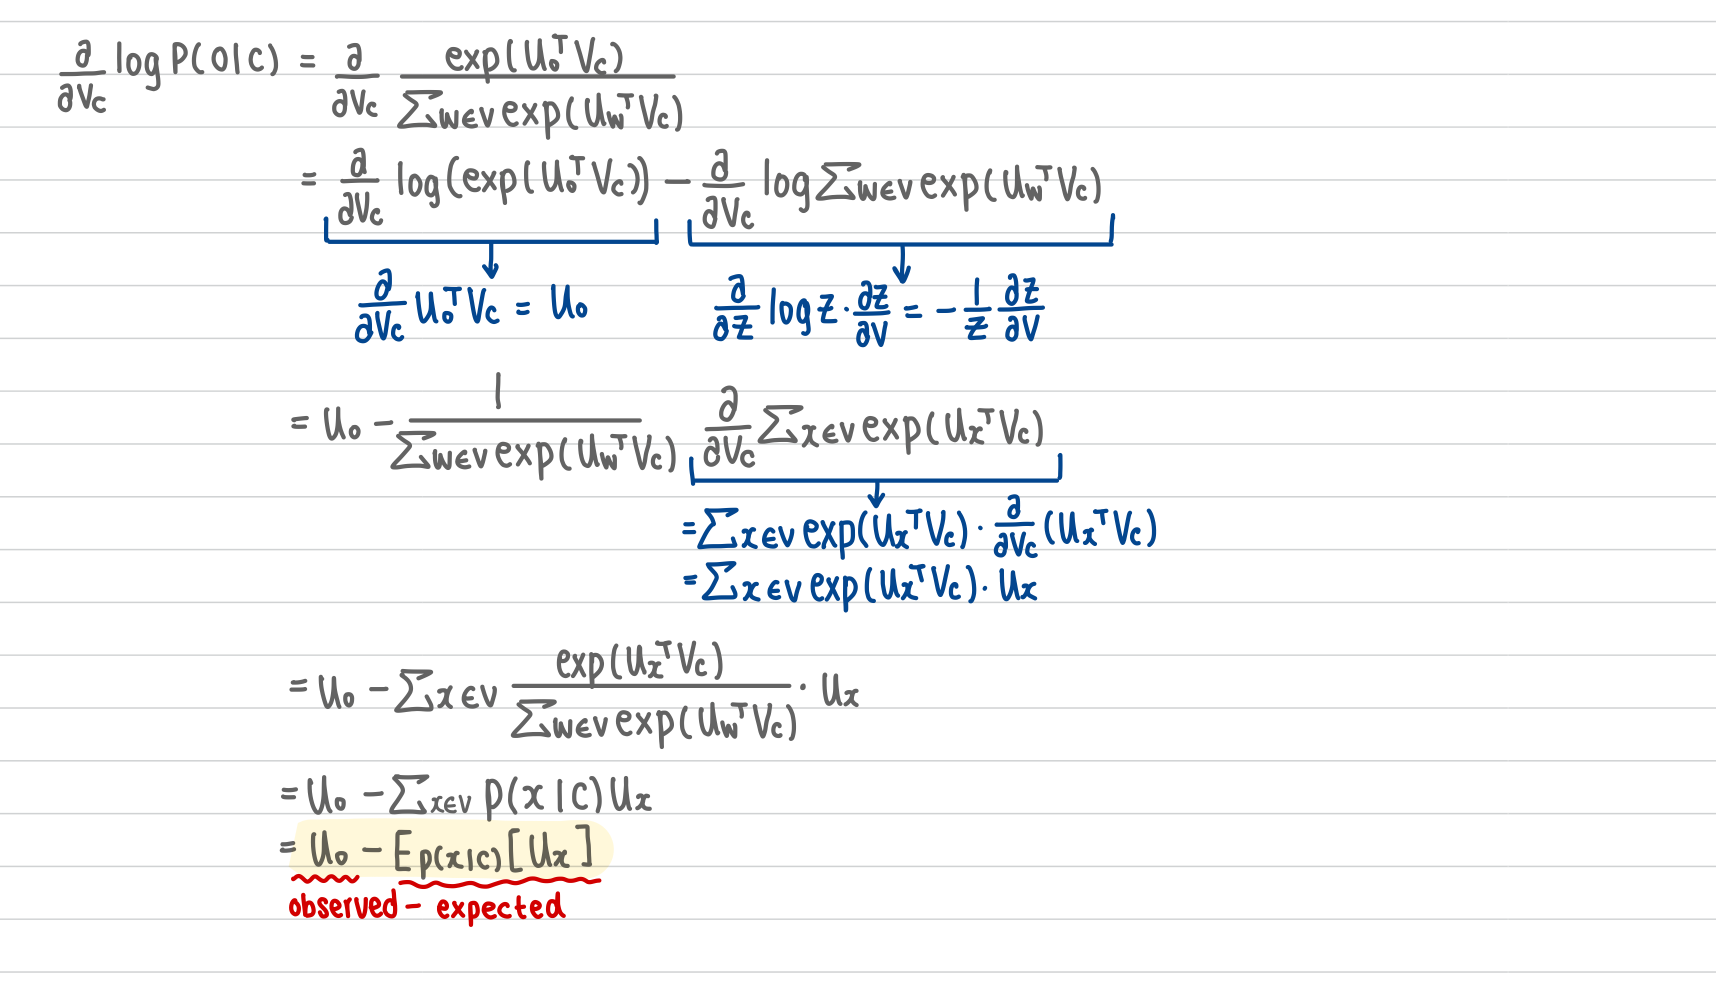 ∂/∂Vc log P(O|C) = ∂/∂Vc exp(Uo^T Vc) / ∑w∈V exp(Uw^T Vc)
= ∂/∂Vc log(exp(Uo^T Vc)) − ∂/∂Vc log ∑w∈V exp(Uw^T Vc)
∂/∂Vc Uo^T Vc = Uo
∂/∂Z log Z · ∂Z/∂V = − 1/Z ∂Z/∂V
= Uo − 1 / ∑w∈V exp(Uw^T Vc) ∂/∂Vc ∑x∈V exp(Ux^T Vc)
= ∑x∈V exp(Ux^T Vc) · ∂/∂Vc (Ux^T Vc)
= ∑x∈V exp(Ux^T Vc) · Ux
= Uo − ∑x∈V exp(Ux^T Vc) / ∑w∈V exp(Uw^T Vc) · Ux
= Uo − ∑x∈V p(x|c) Ux
= Uo − E p(x|c) [Ux]
observed − expected